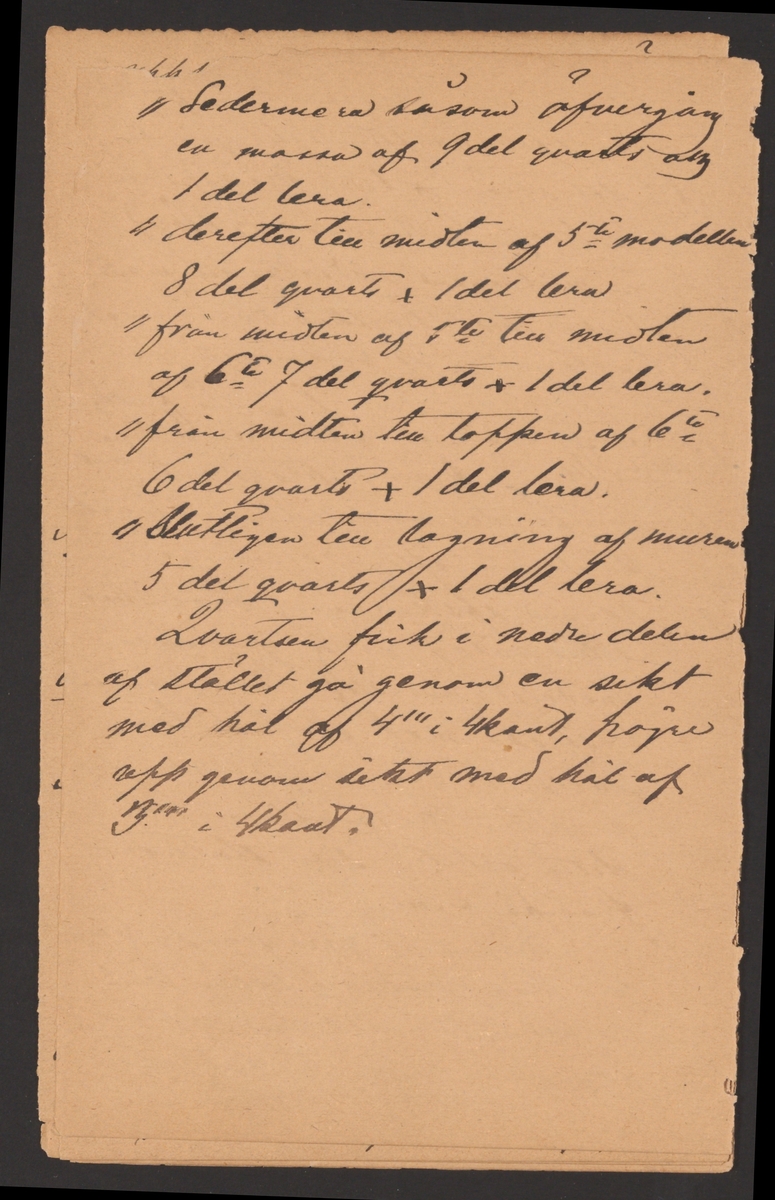 " Sedermera såsom öfvergång
en massa af 9 del qvarts och
1 del lera.
" derefter till midten af 5te modellen
8 del qvarts + 1 del lera
" från midten af 5te till midten
af 6te 7 del qvarts + 1 del lera.
" från midten till toppen af 6te
6 del qvarts + 1 del lera.
" Slutligen till lagning af muren
5 del qvarts + 1 del lera.
Qvartsen fick i nedre delen
af stället gå genom en sikt
med hål af 4''' i 4kant, högre
upp genom sikt med hål af
3''' i 4kant.